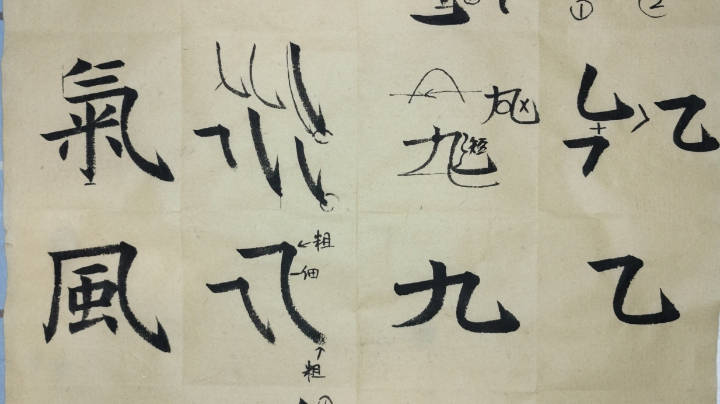 ① ②
氣 九 短 乙
風 粗 九 乙
細
粗